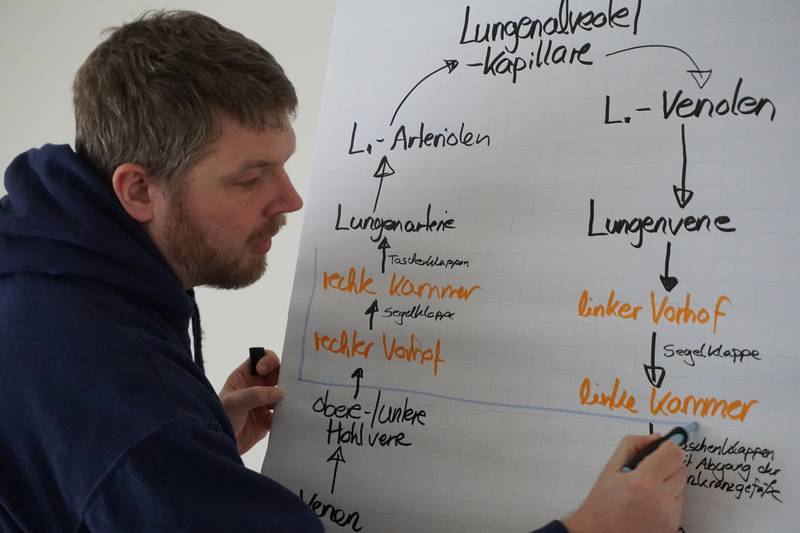 Lungenalveolel
-Kapillare
L.-Arteriolen
L.-Venolen
Lungenarterie
Lungenvene
Taschenklappen
rechte Kammer
linker Vorhof
Segelklappe
Segelklappe
rechter Vorhof
linke Kammer
obere-/untere
Hohlvene
Abgang der
Venen